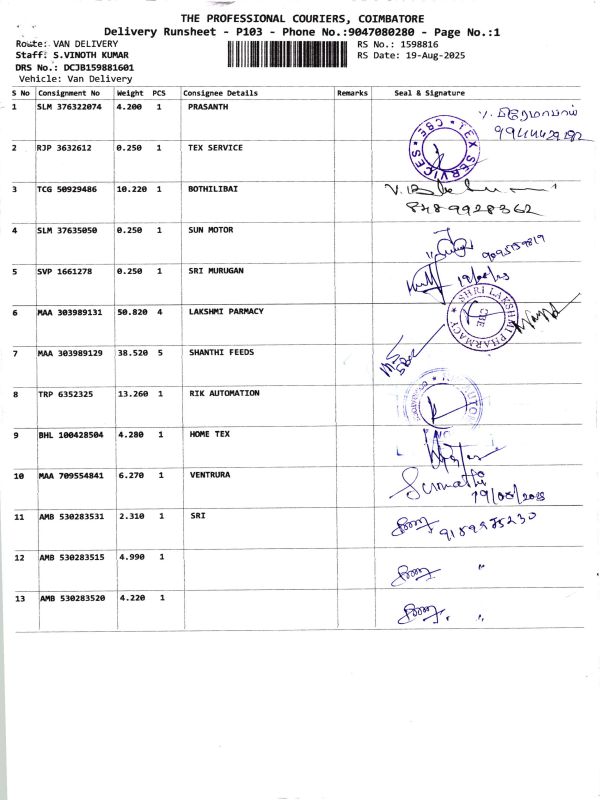 THE PROFESSIONAL COURIERS, COIMBATORE
Delivery Runsheet - P103 - Phone No.:9047080280 - Page No.:1
Route: VAN DELIVERY RS No.: 1598816
Staff: S.VINOTH KUMAR RS Date: 19-Aug-2025
DRS No.: DCJB159881601
Vehicle: Van Delivery
S No Consignment No Weight PCS Consignee Details Remarks Seal & Signature
1 SLM 376322074 4.200 1 PRASANTH
2 RJP 3632612 0.250 1 TEX SERVICE
TEX SERVICES * CBE *
3 TCG 50929486 10.220 1 BOTHILIBAI
8489928362
4 SLM 37635050 0.250 1 SUN MOTOR
5 SVP 1661278 0.250 1 SRI MURUGAN
6 MAA 303989131 50.820 4 LAKSHMI PARMACY
SHRI LAKSHMI PHARMACY * CBE
7 MAA 303989129 38.520 5 SHANTHI FEEDS
8 TRP 6352325 13.260 1 RIK AUTOMATION
9 BHL 100428504 4.280 1 HOME TEX
10 MAA 709554841 6.270 1 VENTRURA
Sumathi
19/08/2025
11 AMB 530283531 2.310 1 SRI
12 AMB 530283515 4.990 1 "
13 AMB 530283520 4.220 1 "